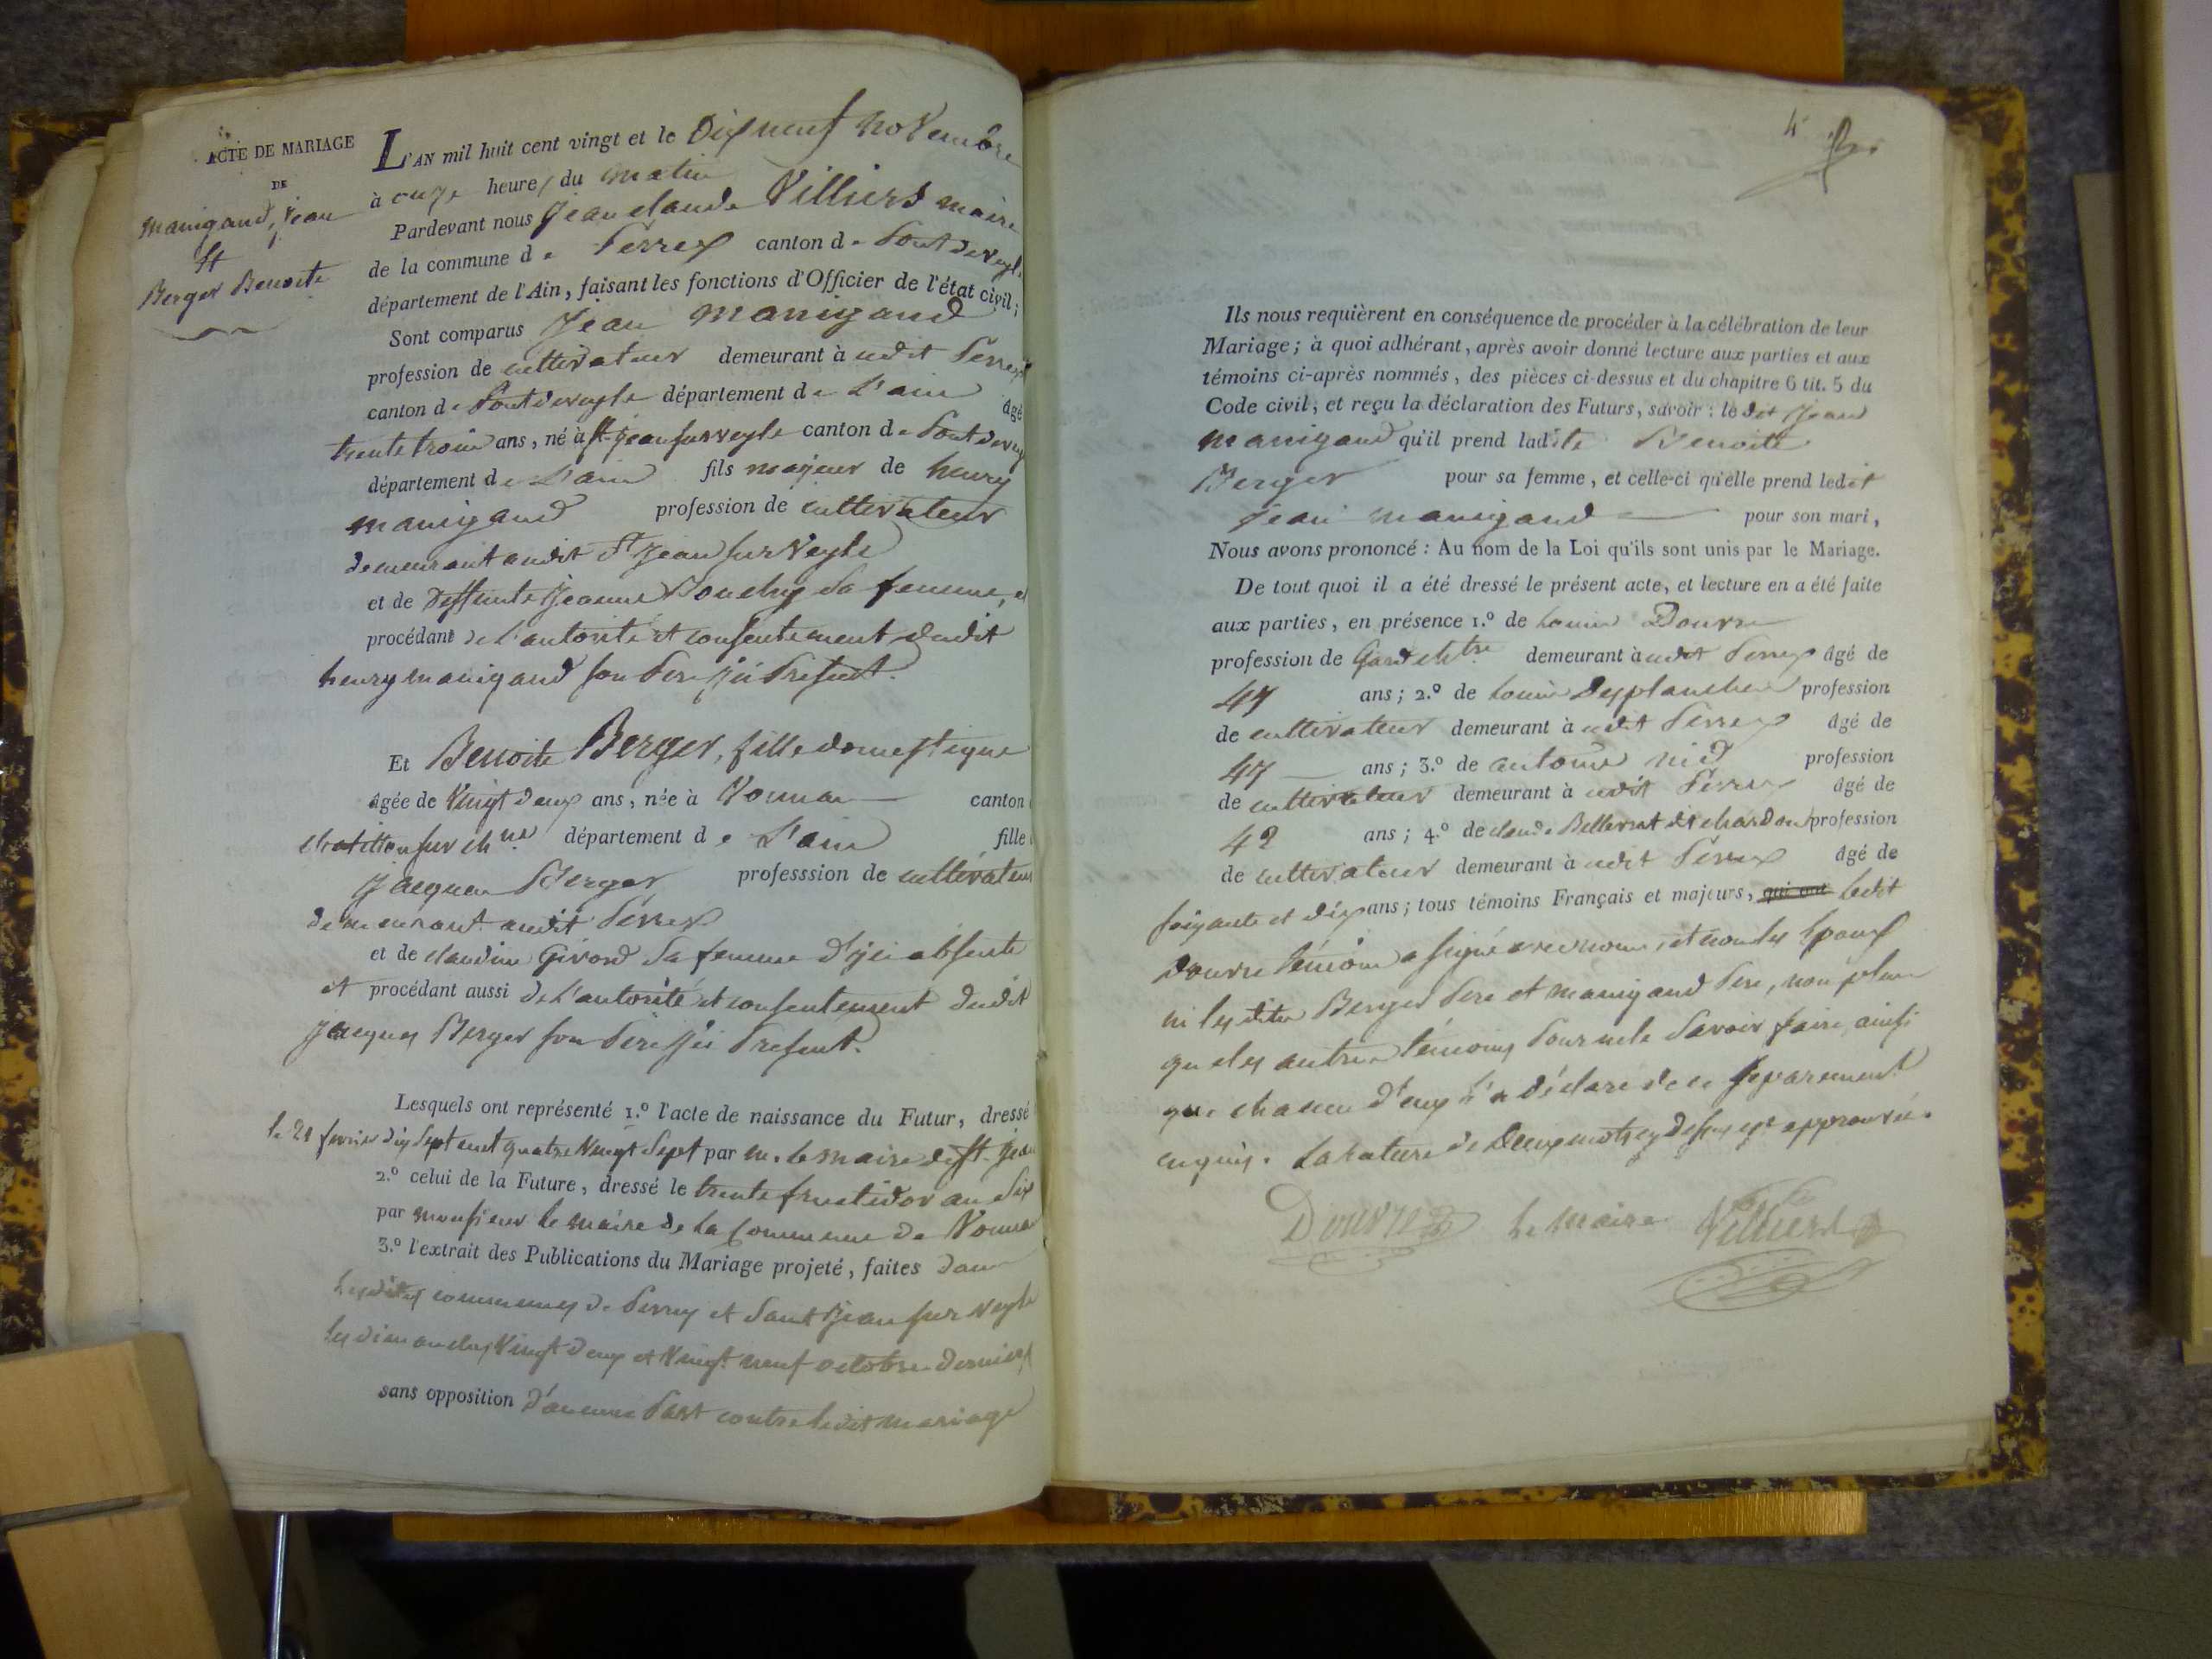 ACTE DE MARIAGE
DE
manigand, jean
et
Berger Benoite
L'AN mil huit cent vingt et le Dixneuf novembre
à onze heures du matin
Pardevant nous Jean claude Villiers maire
de la commune de Perrex canton de Pontdeveyle
département de l'Ain, faisant les fonctions d'Officier de l'état civil;
Sont comparus Jean manigand
profession de cultivateur demeurant à udit Perrex
canton de Pontdeveyle département de L'ain âgé
trente trois ans, né à St jean sur veyle canton de Pontdevey
département de L'ain fils majeur de henry
manigand profession de cultivateur
demeurant audit St Jean sur Veyle
et de deffunte Jeanne Bouchy sa femme, et
procédant de l'autorité et consentement dudit
henry manigand son Pere ici Present.
Et Benoite Berger, fille domestique
âgée de Vingt deux ans, née à Vonnas canton
chatillon sur chne département de L'ain fille
Jacques Berger professsion de cultivateur
demeurant audit Perrex
et de claudine Givord sa femme d'ici absente
et procédant aussi de L'autorité et consentement dudit
Jacques Berger son Pere ici Present.
Lesquels ont représenté 1.º l'acte de naissance du Futur, dressé
le 21 fevrier dix sept cent quatre Vingt Sept par m. le maire de St. Jean
2.º celui de la Future, dressé le trente fructidor an Six
par monsieur le maire de la commune de Vonnas
3.º l'extrait des Publications du Mariage projeté, faites dans
lesdites communes de Perrex et Saint Jean sur veyle
les dimanches Vingt deux et Vingt neuf octobre derniers
sans opposition d'aucune Part contre ledit mariage
4
Ils nous requièrent en conséquence de procéder à la célébration de leur
Mariage; à quoi adhérant, après avoir donné lecture aux parties et aux
témoins ci-après nommés, des pièces ci-dessus et du chapitre 6 tit. 5 du
Code civil; et reçu la déclaration des Futurs, savoir: le dit Jean
manigand qu'il prend ladite Benoitte
Berger pour sa femme, et celle-ci qu'elle prend ledit
Jean manigand pour son mari,
Nous avons prononcé: Au nom de la Loi qu'ils sont unis par le Mariage.
De tout quoi il a été dressé le présent acte, et lecture en a été faite
aux parties, en présence 1.º de Louis Douvre
profession de Gard chtre demeurant à udit Perrex âgé de
47 ans; 2.º de Louis Desplanches profession
de cultivateur demeurant à udit Perrex âgé de
47 ans; 3.º de antoine nid profession
de cultivateur demeurant à udit Perrex âgé de
42 ans; 4.º de claude Bellevrat dit chardon profession
de cultivateur demeurant à udit Perrex âgé de
soixante et dix ans; tous témoins Français et majeurs, qui ont ledit
Douvre témoin a signé avec nous, et non les Epoux
ni lesdits Berger Pere et manigand Pere, non plus
que les autres témoins Pour ne le Savoir faire, ainsi
que chacun d'eux l'a déclaré de ce Separement
enquis. La rature de Deux mots cy dessus est approuvée.
Douvre Le maire Villiers